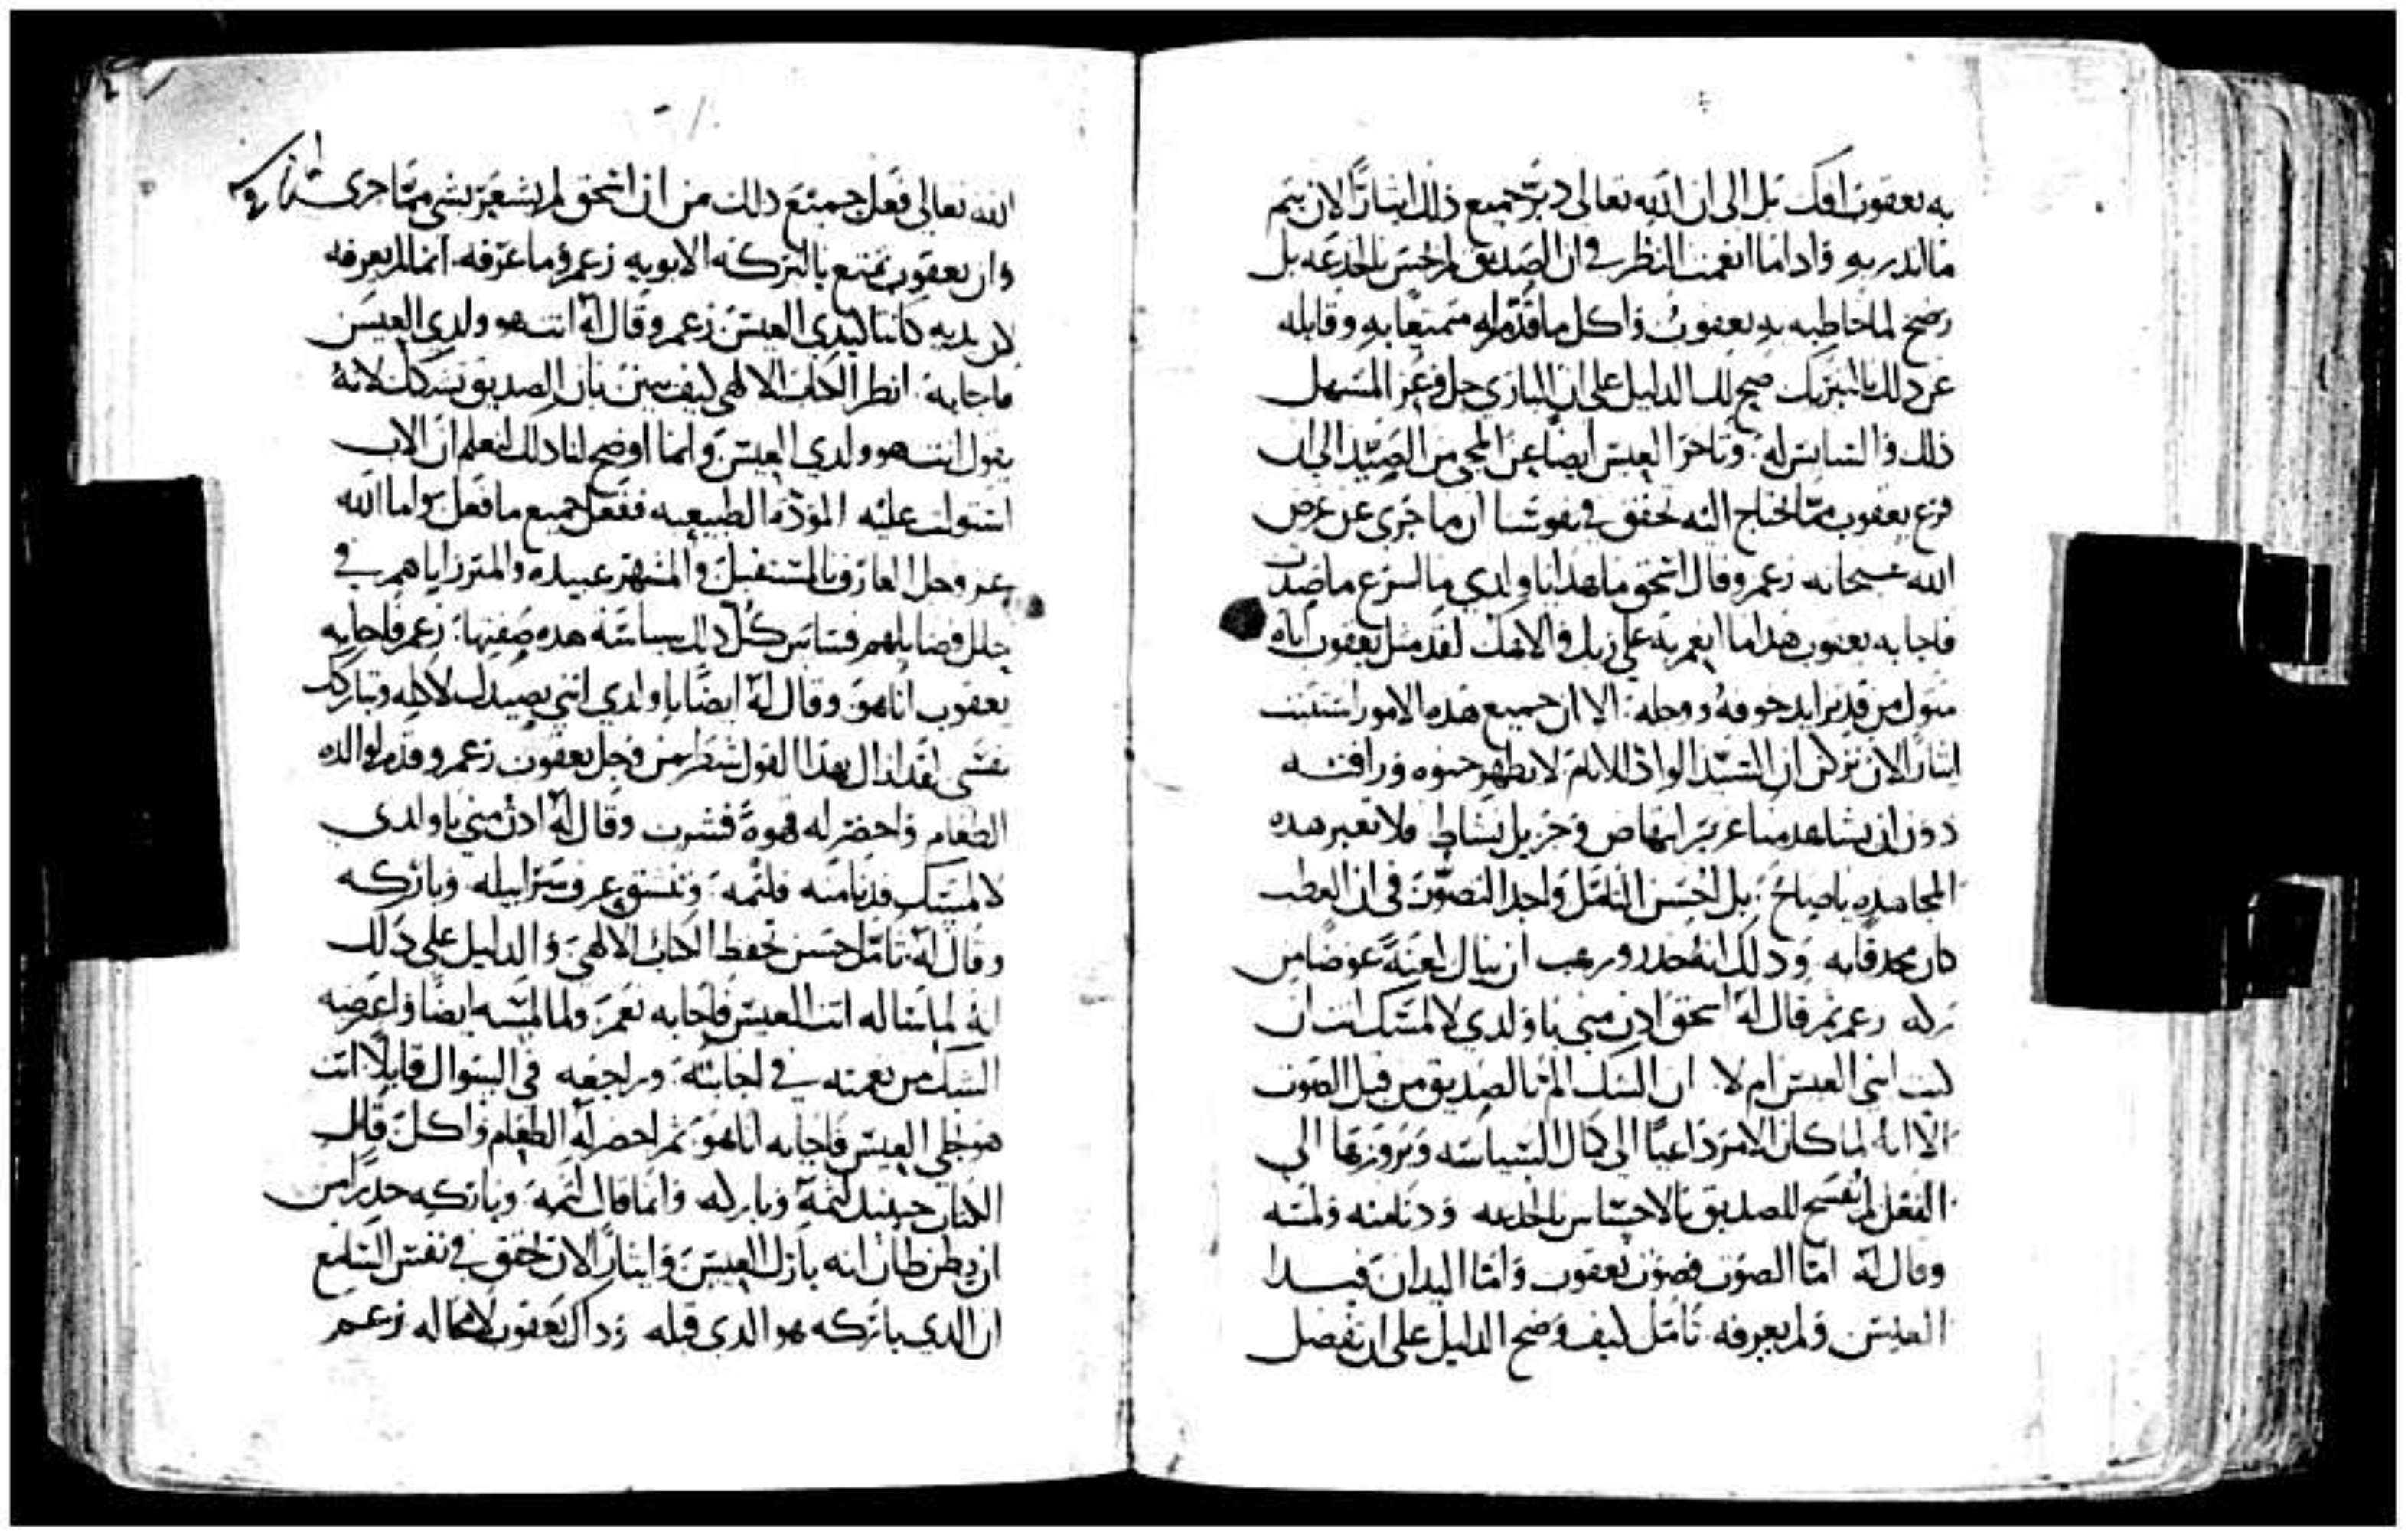 به يعقوب افك بل الى ان الله تعالى دبر جميع ذلك ايثارًا لان يتم
ما انذر به واذا ما انعمت النظر في ان الصديق لم يحس بالخدعه بل
رضخ لما خاطبه به يعقوب واكل ما قدم له متمتعًا به وقابله
عن ذلك بالتبريك صح لك الدليل على ان الباري جل وعز المسهل
ذلك والسايس له وتاخر العيس ايضًا عن المجي من الصيد الى ان
فرغ يعقوب مما احتاج اليه تحقق في نفوسنا ان ما جرى عن غرض
الله سبحانه زعم وقال اسحق ما هذا يا ولدي ما اسرع ما صدت
فاجابه يعقوب هذا ما انعم به علي ربك والاهك لقد مثل يعقوب اباه
مثول من قد تزايد خوفه ووجله الا ان جميع هذه الامور استتبت
ايثارًا لان نركن ان السيد الواد للانام لا يظهر حنوه ورافته
دون ان يشاهد منا عزيز انتهاض وجزيل نشاط فلا تعبر هذه
المجاهده يا صاح بل احسن التامل واجد التصور في ان العطب
كان محدقًا به وذلك انه حذر ورهب ان ينال لعنة عوضًا من
بركه زعم ثم قال له اسحق ادن مني يا ولدي لالمسك انت ان
كنت ابني العيس ام لا ان الشك الم بالصديق من قبل الصوت
الا انه لما كان الامر داعيًا الى كمال السياسه وبروزها الى
الفعل لم يفسح للصديق بالاحساس بالخدعه ودنا منه ولمسه
وقال له اما الصوت فصوت يعقوب واما اليدان فيدا
العيس ولم يعرفه تامل كيف وضح الدليل على ان تفضل
الله تعالى فعل جميع ذلك من ان اسحق لم يشعر بشي مما جرى
وان يعقوب تمتع بالبركه الابويه زعم وما عرفه انما لم يعرفه
لان يديه كانتا كيدي العيس زعم وقال له انت هو ولدي العيس
فاجابه انظر الكتاب الالهي كيف يبين بان الصديق تشكك لانه
يقول انت هو ولدي العيس وانما اوضح لنا ذلك لنعلم ان الاب
استولت عليه المودة الطبيعيه ففعل جميع ما فعل واما الله
عز وجل العارف بالمستقبل والمشهر عبيده والمبرز اياهم في
جلل فضايلهم فساس كل ذلك سياسة هذه صفتها زعم فاجابه
يعقوب انا هو وقال له ايضًا يا ولدي ايتني بصيدك لاكله وتباركك
نفسي لقد ازال بهذا القول شطر من وجل يعقوب زعم وقدم لوالده
الطعام واحضر له قهوة فشرب وقال له ادن مني يا ولدي
لالمسك فدنا منه فلثمه وتنسق عرف سرابيله وباركه
وقال له تامل حسن تحفظ الكتاب الالهي والدليل على ذلك
انه لما ساله انت العيس فاجابه نعم ولما لمسه ايضًا واعترضه
الشك من نغمته في اجابته وراجعه في السوال قايلًا انت
هو نجلي العيس فاجابه انا هو ثم احضر له الطعام واكل قال
الكتاب حينيذ لثمه وباركه وانما قال لثمه وباركه حذرًا من
ان يظن ظان انه بارك العيس وايثارًا لان تحقق في نفس السامع
ان الذي باركه هو الذي قبله وذاك يعقوب لا محاله زعم